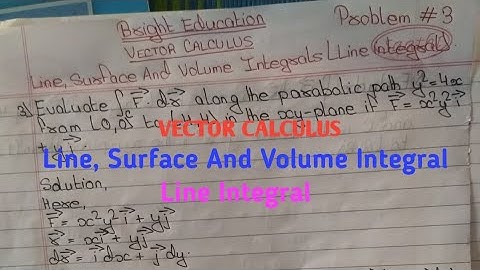 Bright Education
Problem #3
VECTOR CALCULUS
Line, Surface And Volume Integrals [Line Integral]
3) Evaluate ∫c F⃗. dr⃗ along the parabolic path y²=4x
from (0,0) to in the xy-plane if F⃗ = x²y²i⃗
+ yj⃗.
VECTOR CALCULUS
Line, Surface And Volume Integral
Line Integral
Solution,
Here,
F⃗ = x²y²i⃗ + yj⃗
r⃗ = xi⃗ + yj⃗
dr⃗ = i⃗ dx + j⃗ dy.